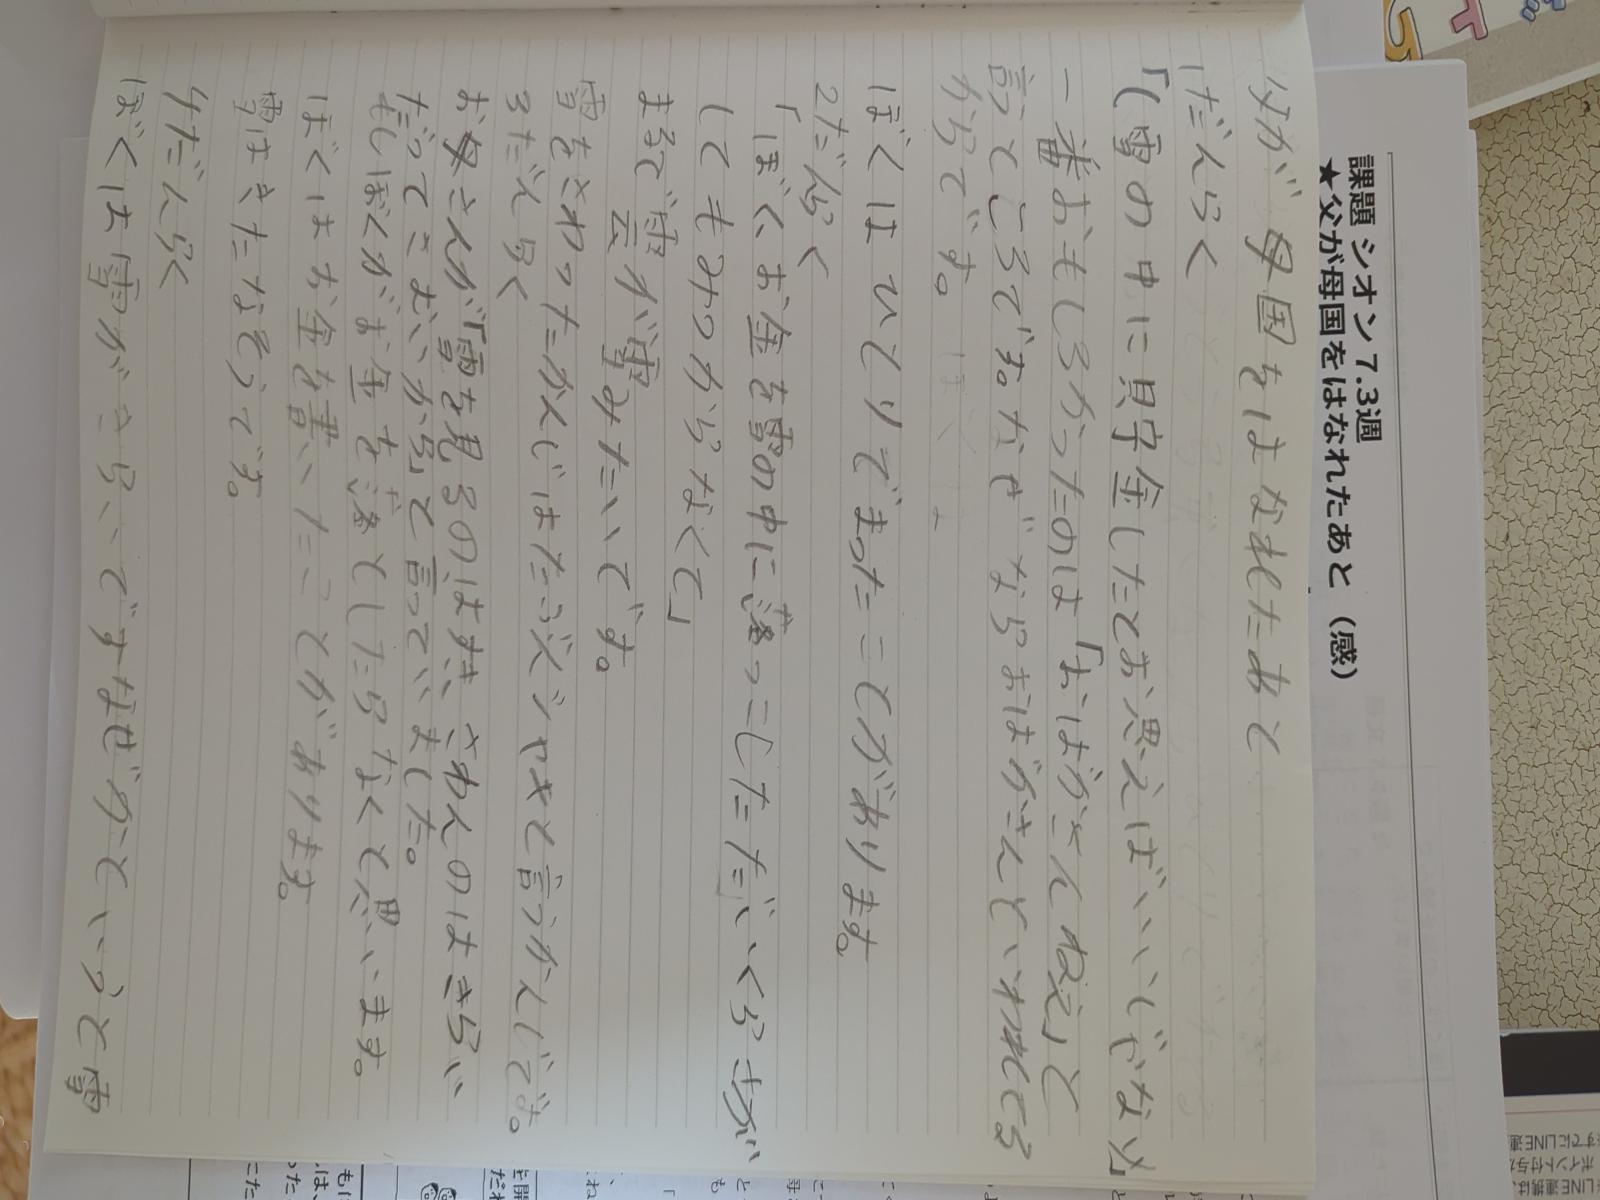 課題 シオン 7.3週
★父が母国をはなれたあと（感）
父が母国をはなれたあと
1だんらく
「(雪の中に貝宇金したとお思えばいいじゃない」
一番おもしろかったのは「おばかさんねえ」と
言ってところでるなぜならおばかさんといわれてる
からです。
ぼくはひとりでまったことがあります。
2だんらく
「ぼくお金を雪の中に落っこしたただいくらさが
してもみつからなくて」
まるで雪が雪みたいです。
雲
雪をさわったかんじはたぶんシャキと言うかんじです。
3だんらく
お母さんが「雪を見るのはすき、さわんのはきらい
だってさむいから」と言っていました。
もしぼくがお金を落としたらなくと思います。
ぼくはお金を書いたことがあります。
雪はきたなそうです。
4だんらく
ぼくは雪がきらいですなぜかというと雪